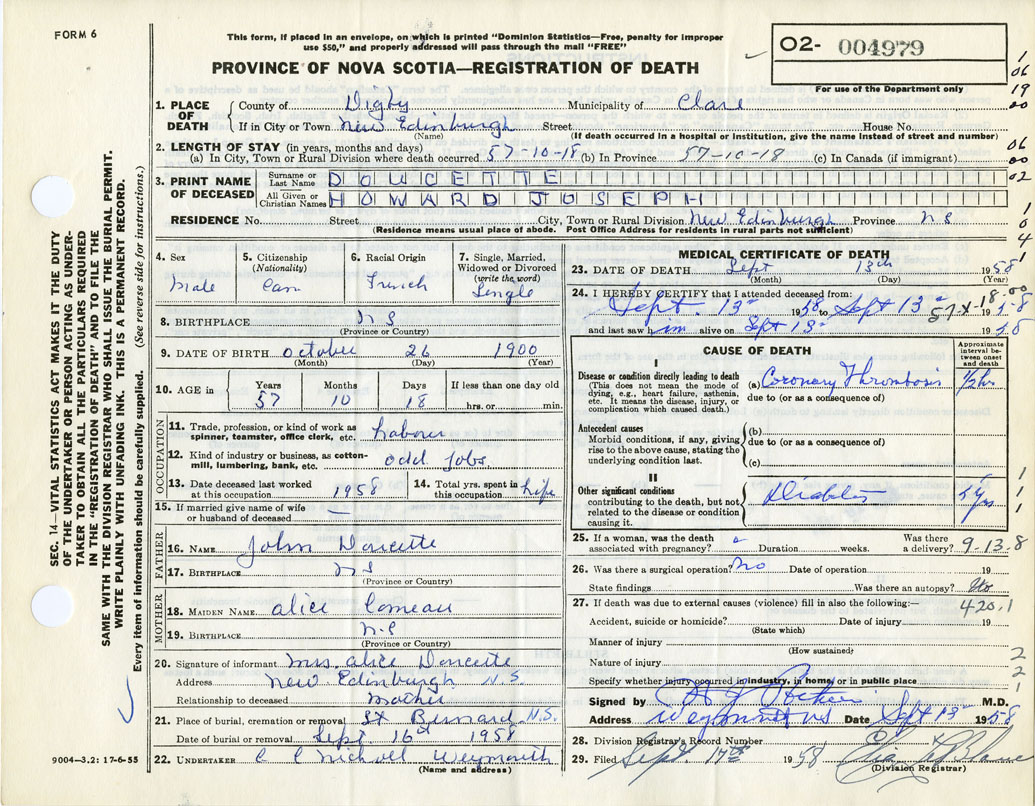 FORM 6
This form, if placed in an envelope, on which is printed "Dominion Statistics—Free, penalty for improper
use $50," and properly addressed will pass through the mail "FREE"
02- 004979
For use of the Department only
PROVINCE OF NOVA SCOTIA—REGISTRATION OF DEATH
1. PLACE OF DEATH County of Digby Municipality of Clare
If in City or Town New Edinburgh Street House No.
(Name) (If death occurred in a hospital or institution, give the name instead of street and number)
2. LENGTH OF STAY (in years, months and days)
(a) In City, Town or Rural Division where death occurred 57-10-18 (b) In Province 57-10-18 (c) In Canada (if immigrant)
3. PRINT NAME OF DECEASED Surname or Last Name DOUCETTE
All Given or Christian Names HOWARD JOSEPH
RESIDENCE No. Street City, Town or Rural Division New Edinburgh Province N S
(Residence means usual place of abode. Post Office Address for residents in rural parts not sufficient)
4. Sex Male
5. Citizenship (Nationality) Can
6. Racial Origin French
7. Single, Married, Widowed or Divorced (write the word) Single
8. BIRTHPLACE N S
(Province or Country)
9. DATE OF BIRTH October 26 1900
(Month) (Day) (Year)
10. AGE in Years 57 Months 10 Days 18 If less than one day old hrs. or min.
OCCUPATION
11. Trade, profession, or kind of work as spinner, teamster, office clerk, etc. Labour
12. Kind of industry or business, as cotton-mill, lumbering, bank, etc. odd jobs
13. Date deceased last worked at this occupation 1958
14. Total yrs. spent in this occupation Life
15. If married give name of wife or husband of deceased —
FATHER
16. NAME John Doucette
17. BIRTHPLACE N S
(Province or Country)
MOTHER
18. MAIDEN NAME Alice Comeau
19. BIRTHPLACE N-S
(Province or Country)
20. Signature of informant Mrs. Alice Doucette
Address New Edinburgh N.S.
Relationship to deceased Mother
21. Place of burial, cremation or removal St Bernard N.S.
Date of burial or removal Sept. 16th 1958
22. UNDERTAKER C C Nichols Weymouth
(Name and address)
MEDICAL CERTIFICATE OF DEATH
23. DATE OF DEATH Sept 13th 1958
(Month) (Day) (Year)
24. I HEREBY CERTIFY that I attended deceased from:
Sept. 13 1958 to Sept 13 1958
and last saw him alive on Sept 13 1958
CAUSE OF DEATH
Approximate interval between onset and death
I
Disease or condition directly leading to death
(This does not mean the mode of dying, e.g., heart failure, asthenia, etc. It means the disease, injury, or complication which caused death.)
(a) Coronary Thrombosis 1/2 hr
due to (or as a consequence of)
Antecedent causes
Morbid conditions, if any, giving rise to the above cause, stating the underlying condition last.
(b)
due to (or as a consequence of)
(c)
II
Other significant conditions
contributing to the death, but not related to the disease or condition causing it.
Diabetes
25. If a woman, was the death associated with pregnancy? Duration weeks. Was there a delivery? 9-13-8
26. Was there a surgical operation? No Date of operation 19
State findings Was there an autopsy?
27. If death was due to external causes (violence) fill in also the following:— 420.1
Accident, suicide or homicide? Date of injury 19
(State which)
Manner of injury
(How sustained)
Nature of injury
Specify whether injury occurred in industry, in home, or in public place
Signed by M.D.
Address Weymouth NS Date Sept 13 1958
28. Division Registrar's Record Number
29. Filed Sept. 17th 1958
(Division Registrar)
SEC. 14—VITAL STATISTICS ACT MAKES IT THE DUTY
OF THE UNDERTAKER OR PERSON ACTING AS UNDER-
TAKER TO OBTAIN ALL THE PARTICULARS REQUIRED
IN THE "REGISTRATION OF DEATH" AND TO FILE THE
SAME WITH THE DIVISION REGISTRAR WHO SHALL ISSUE THE BURIAL PERMIT.
WRITE PLAINLY WITH UNFADING INK. THIS IS A PERMANENT RECORD.
Every item of information should be carefully supplied. (See reverse side for instructions.)
9004—3.2: 17-6-55